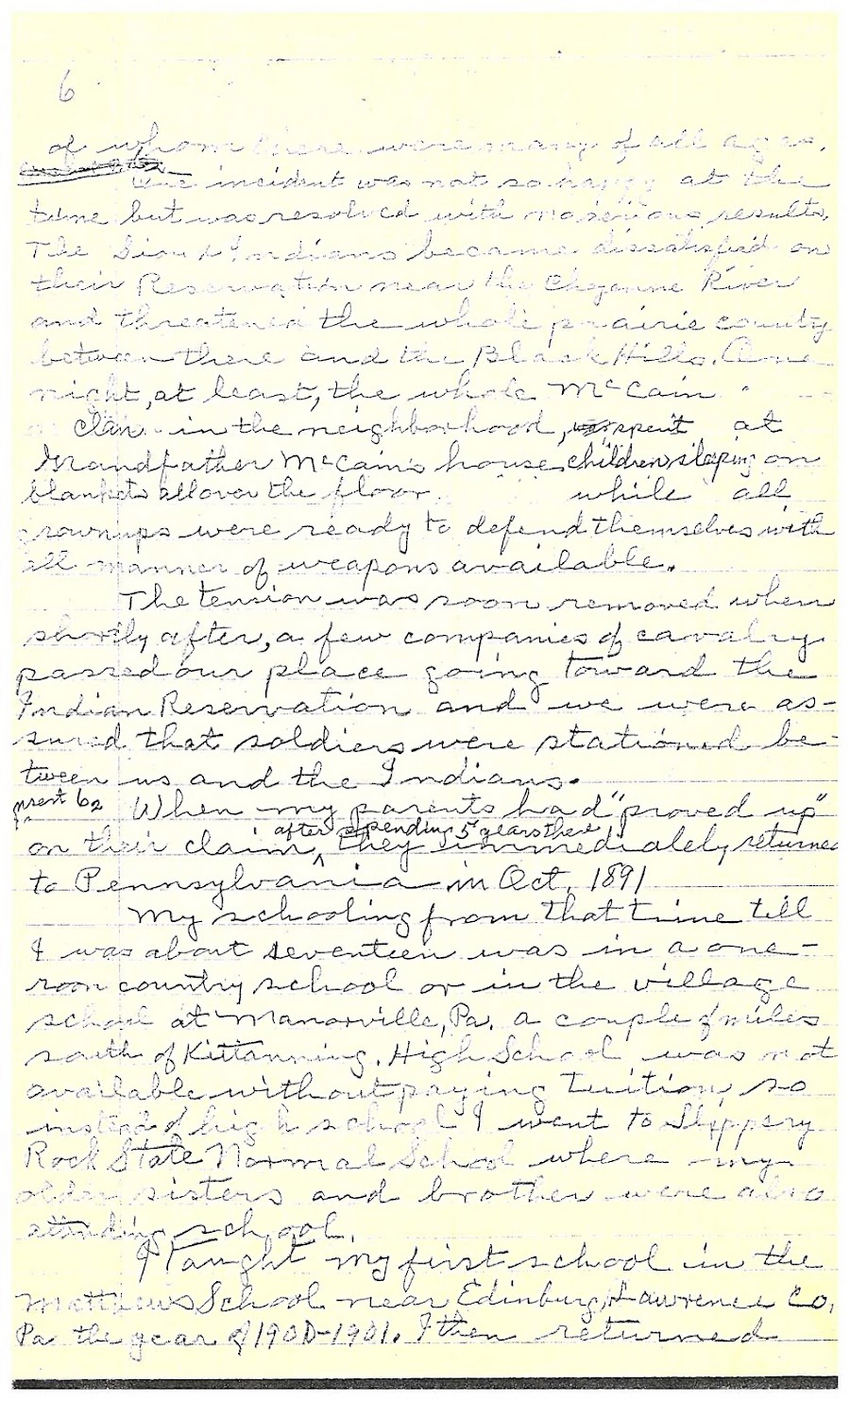 6
of whom there were many of all ages.
One incident was not so happy at the
time but was resolved with no serious results.
The Sioux Indians became dissatisfied on
their Reservation near the Cheyenne River
and threatened the whole prairie county
between there and the Black Hills. One
night, at least, the whole McCain
Clan in the neighborhood, spent at
Grandfather McCain's house, children sleeping on
blankets all over the floor while all
grownups were ready to defend themselves with
all manner of weapons available.
The tension was soon removed when
shortly after, a few companies of cavalry
passed our place going toward the
Indian Reservation and we were as-
sured that soldiers were stationed be-
tween us and the Indians.
insert 6a When my parents had "proved up"
after spending 5 years there
on their claim, they immediately returned
to Pennsylvania in Oct. 1891
My schooling from that time till
I was about seventeen was in a one-
room country school or in the village
school at Manorville, Pa. a couple of miles
south of Kittanning. High School was not
available without paying tuition, so
instead of high school I went to Slippery
Rock State Normal School where my
older sisters and brother were also
attending school.
I taught my first school in the
Matthews School near Edinburg, Lawrence Co,
Pa. the year of 1900-1901. I then returned